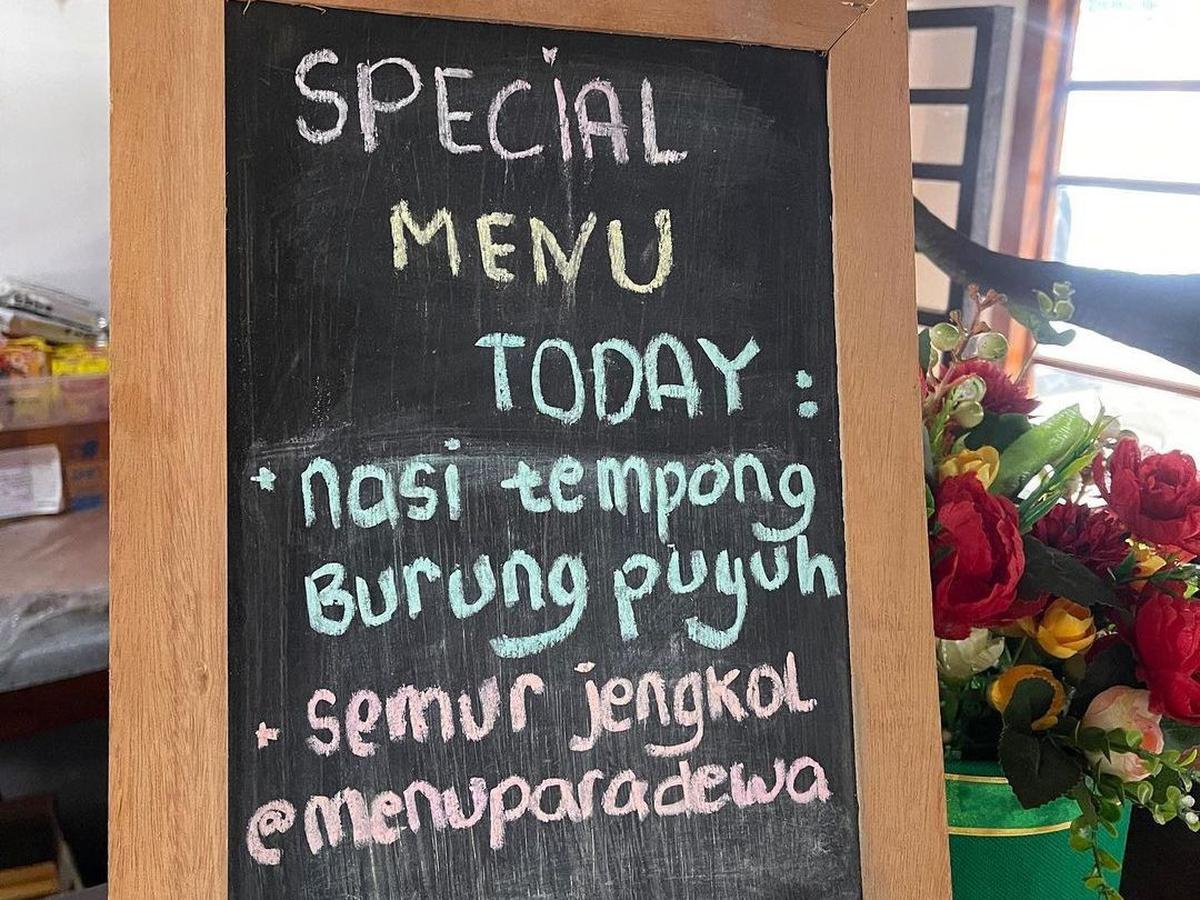 SPECIAL
MENU
TODAY :
* nasi tempong
Burung puyuh
* semur jengkol
@menuparadewa